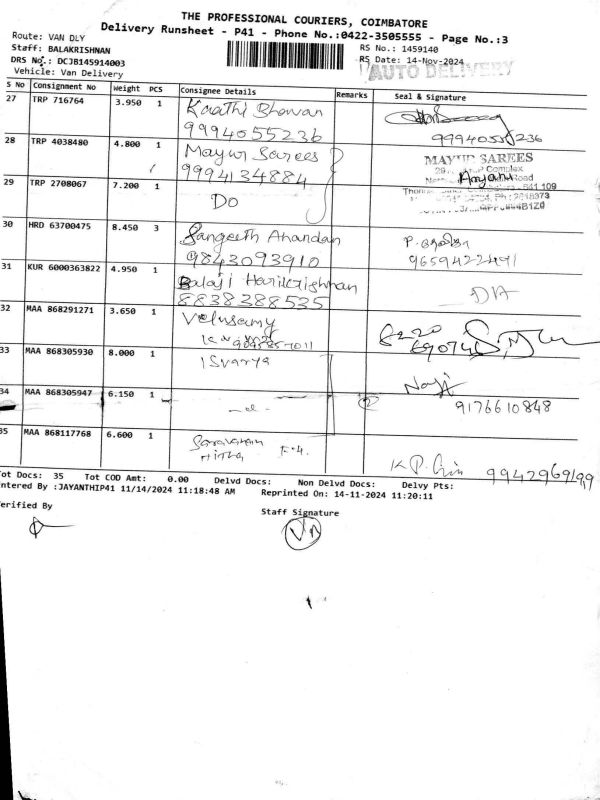 THE PROFESSIONAL COURIERS, COIMBATORE
Delivery Runsheet - P41 - Phone No.:0422-3505555 - Page No.:3
Route: VAN DLY
Staff: BALAKRISHNAN
RS No.: 1459140
DRS No.: DCJB145914003
RS Date: 14-Nov-2024
Vehicle: Van Delivery
AUTO DELIVERY
S No Consignment No Weight PCS Consignee Details Remarks Seal & Signature
27 TRP 716764 3.950 1 Kaathi Bhavan
9994055236
28 TRP 4038480 4.800 1 Mayur Sarees
9994134884
MAYUR SAREES
Complex
Road
641 109
29 TRP 2708067 7.200 1 DO
30 HRD 63700475 8.450 3 Sangeeth Anandan
9843093910
9659422491
31 KUR 6000363822 4.950 1 Balaji Harikrishnan
8838388535
32 MAA 868291271 3.650 1 Velusamy
33 MAA 868305930 8.000 1 Isvarya
34 MAA 868305947 6.150 1
9176610848
35 MAA 868117768 6.600 1 Saravanan
Tot Docs: 35 Tot COD Amt: 0.00 Delvd Docs: Non Delvd Docs: Delvy Pts:
Entered By :JAYANTHIP41 11/14/2024 11:18:48 AM Reprinted On: 14-11-2024 11:20:11
Verified By
Staff Signature